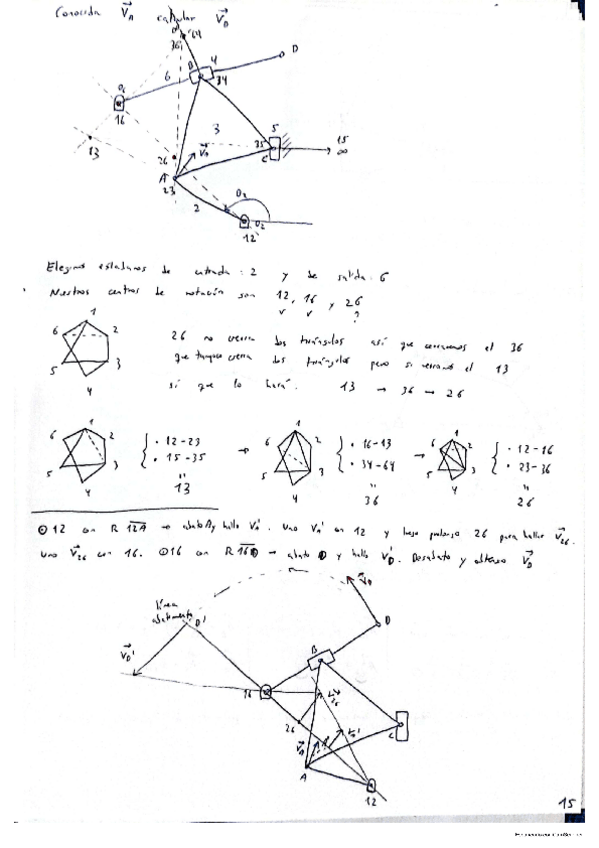 Conocida V_A calcular V_D
D' 64
36
B 4 D
34
6
O6
16
3 5
35 15
C ∞
13
26 V_A
A
23
2 θ2
O2
12
Elegimos eslabones de entrada: 2 y de salida: 6
Nuestros centros de rotación son 12, 16 y 26
v v ?
1
6 2
5 3
4
26 no cierra dos triángulos así que cerraremos el 36
que tampoco cierra dos triángulos pero si cerramos el 13
sí que lo hará. 13 → 36 → 26
1
6 2
5 3
4
· 12-23
· 15-35
=
13
→
1
6 2
5 3
4
· 16-13
· 34-64
=
36
→
1
6 2
5 3
4
· 12-16
· 23-36
=
26
⊙ 12 con R 12A → abato A y hallo V_A'. Uno V_A' con 12 y luego prolongo 26 para hallar V_26.
Uno V_26 con 16. ⊙ 16 con R 16D → abato D y hallo V_D'. Desabato y obtengo V_D
línea
abatimiento D'
V_D
D
V_D'
B
16
V_26
26
C
V_A A' V_A'
A
12
15